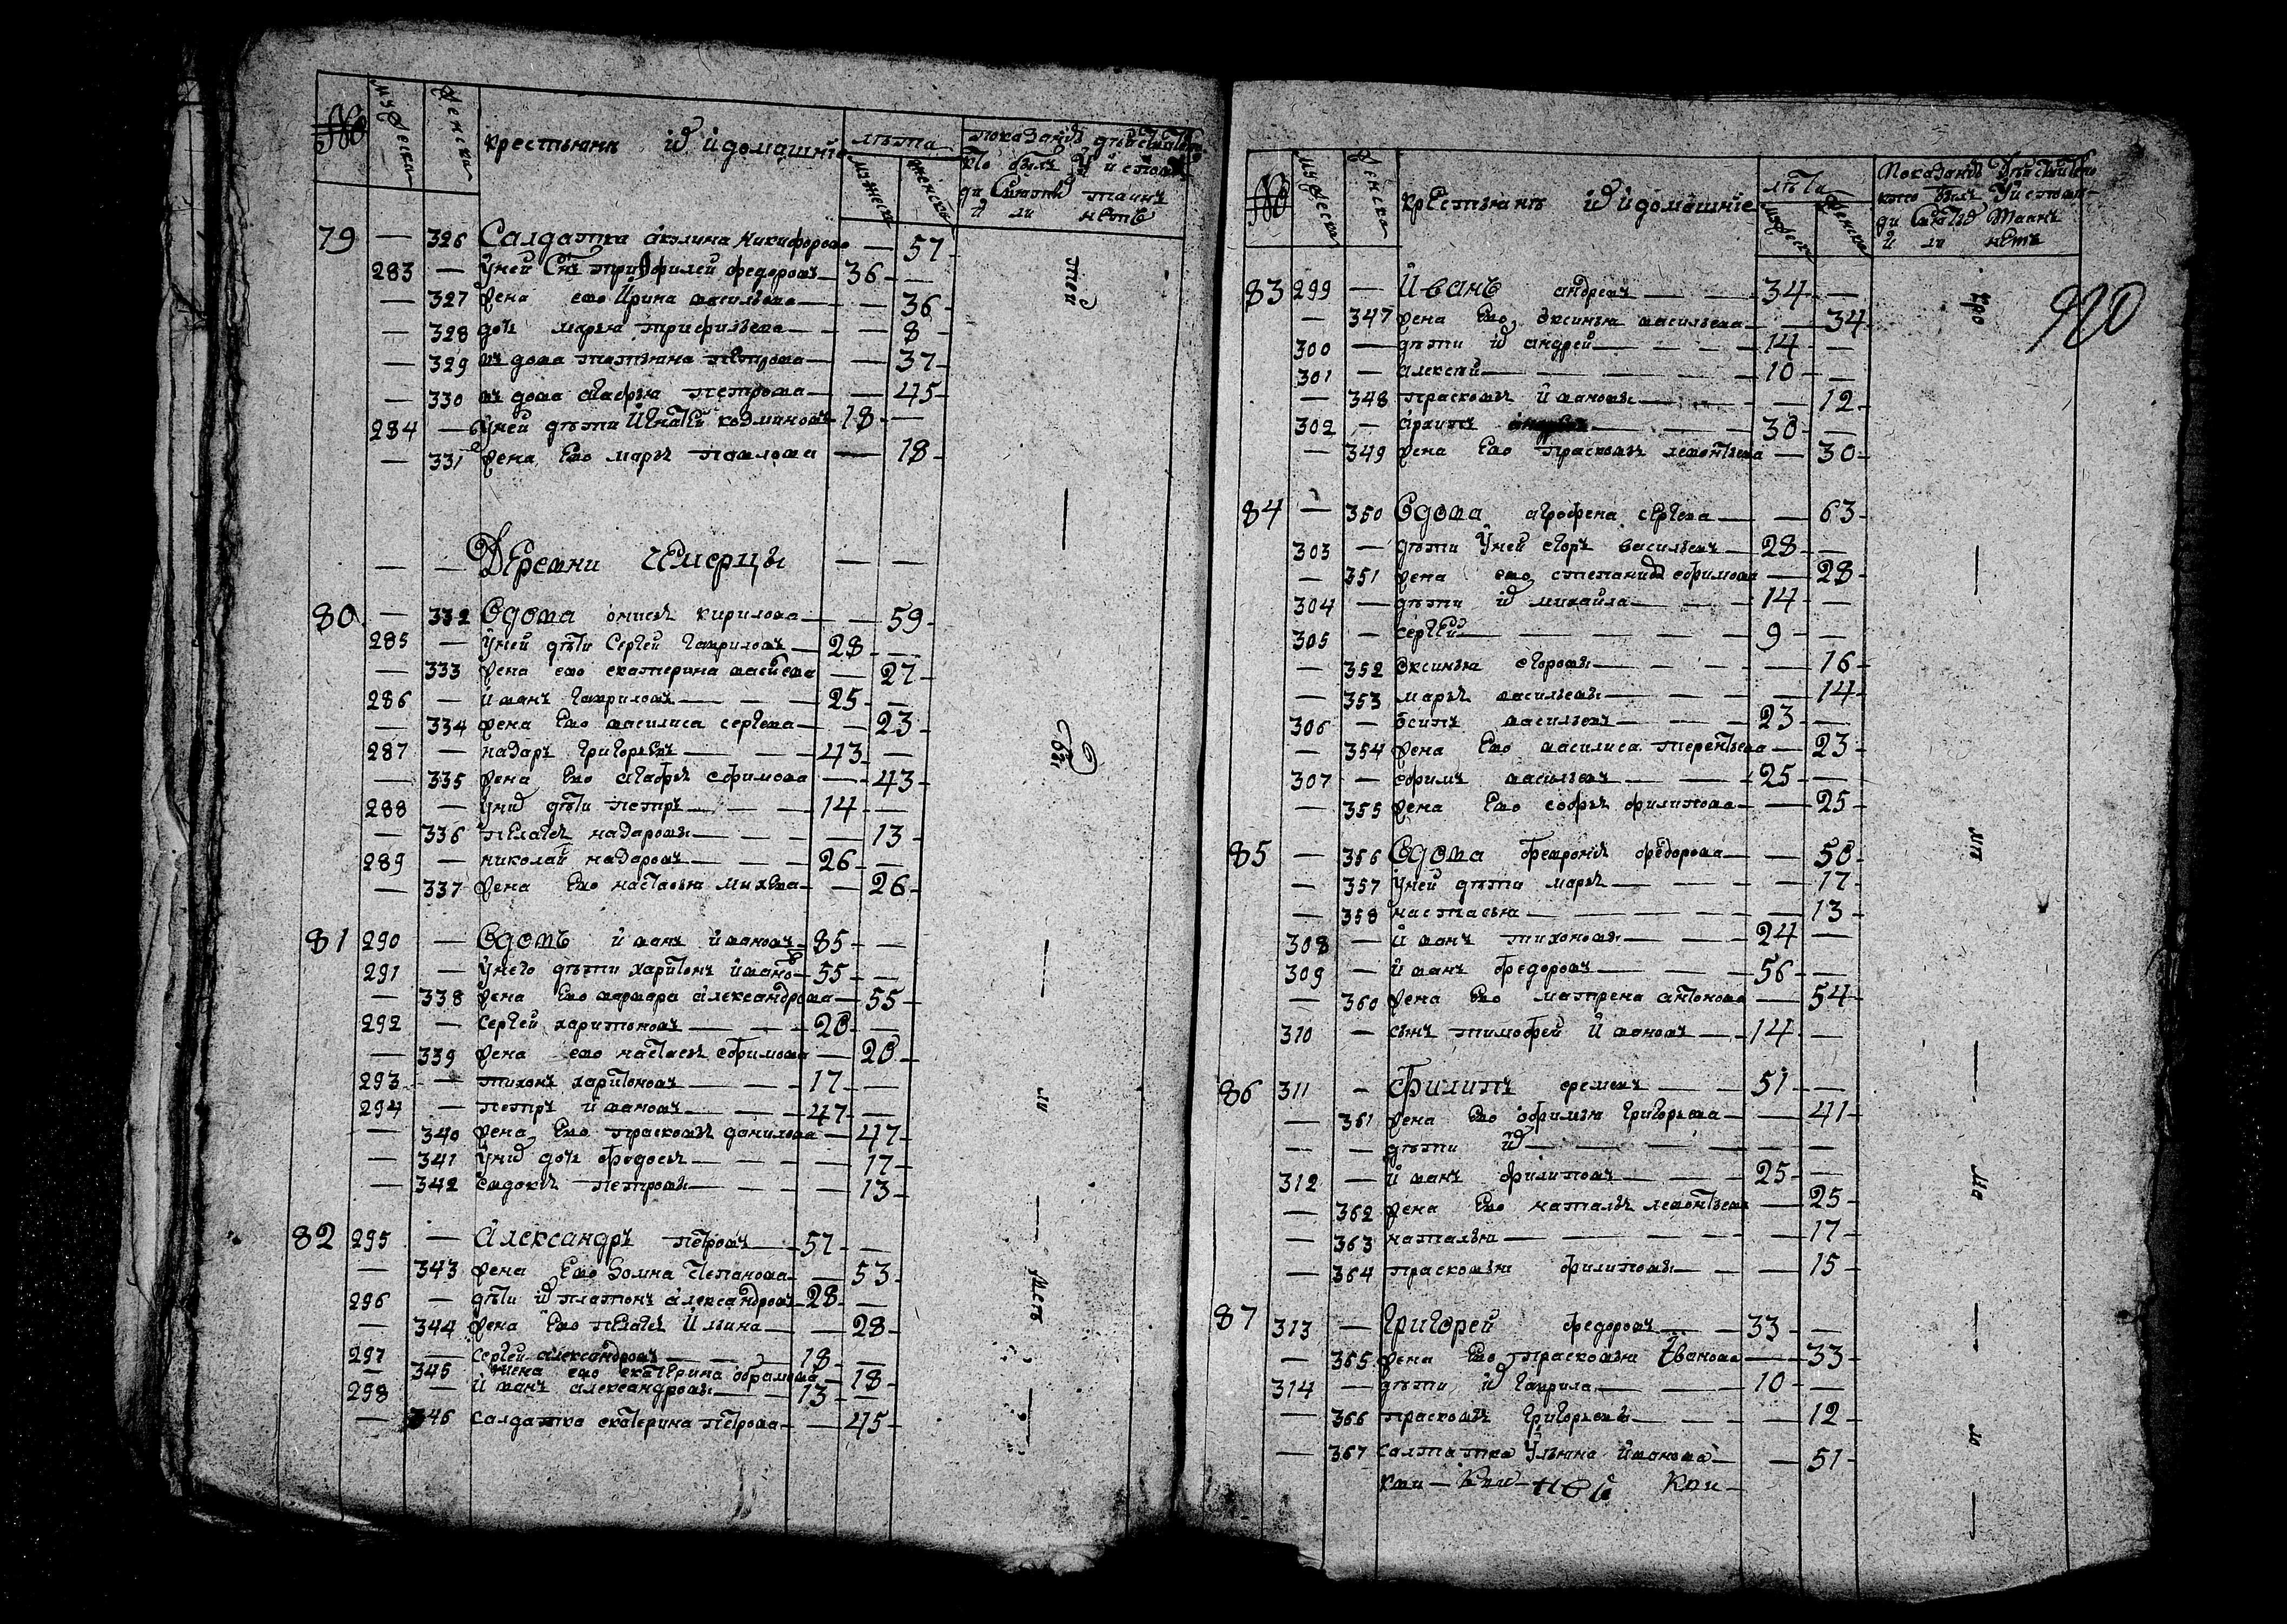 № мужеска женска крестьянъ их и домашние лѣта мужеска женска
79 — 326 Салдатка акулина Никифорова — 57
283 — У ней Снъ трифилей федоровъ 36 —
— 327 жена ево Ирина васильева — 36
— 328 дочь марья трифильева — 8
— 329 въдова татьяна петрова — 37
— 330 въдова агафья петрова — 45
284 — у ней дѣти Игнатей козминовъ 18 —
— 331 жена ево марья павлова — 18
— — Деревни чемерцы — —
80 — 332 Вдова онисья кирилова — 59
285 — У ней дѣти Сергей гавриловъ 28 —
333 жена ево екатерина — 27
286 — иванъ гавриловъ 25 —
— 334 жена ево василиса сергева — 23
287 — назаръ григорьевъ 43 —
— 335 жена ево агафья ефимова — 43
288 — У них дѣти петръ 14 —
— 336 пелагея назаровы — 13
289 — николай назаровъ 26 —
— 337 жена ево настасья михева — 26
81 290 — Вдовъ иванъ ивановъ 85 —
291 — У него дѣти харитонъ иванов 55 —
— 338 жена ево варвара александрова — 55
292 — сергей харитоновъ 20 —
— 339 жена ево настасья ефимова — 20
293 — тихонъ харитоновъ 17 —
294 — петръ ивановъ 47 —
— 340 жена ево прасковья данилова — 47
— 341 У них дочь федосья — 17
— 342 евдокия петровы — 13
82 295 — Александръ петровъ 57 —
— 343 жена ево домна степанова 53
296 — дѣти их платонъ александровъ 28 —
— 344 жена ево пелагея Ильина — 28
297 — Сергей александровъ 18 —
— 345 жена ево екатерина абрамова — 18
298 — иванъ александровы 13 —
— 346 салдатка екатерина петрова — 45
№ мужеска женска крестьянъ их и домашние лѣта женска
920
83 299 — Иванъ андреевъ 34 —
— 347 жена ево аксинья васильева — 34
300 — дѣти их андрей 14 —
301 — алексей 10 —
— 348 прасковья ивановы — 12
302 — архипъ 30 —
— 349 жена ево прасковья леонтьева — 30
84 — 350 Вдова агрофена сергева — 63
303 — дѣти У ней егоръ васильевъ 28 —
— 351 жена ево степанида ефимова — 28
304 — дѣти их михайла 14 —
305 — сергей 9 —
— 352 аксинья егоровы — 16
— 353 марья васильевы — 14
306 — осипъ васильевъ 23 —
— 354 жена ево василиса терентьева — 23
307 — ефимъ васильевъ 25 —
— 355 жена ево софья филипова — 25
85 — 356 Вдова февронья федорова — 50
— 357 У ней дѣти марья — 17
— 358 настасья — 13
308 — иванъ тихоновы 24 —
309 — иванъ федоровъ 56 —
— 360 жена ево матрена антонова — 54
310 — сынъ тимофей Ивановъ 14 —
86 311 — Филипъ еремеевъ 51 —
— 361 жена ево афимья григорьева — 41
— — дѣти их — —
312 — иванъ филиповъ 25 —
— 362 жена ево наталья леонтьева — 25
— 363 наталья — 17
— 364 прасковья филиповы — 15
87 313 — Григорей федоровъ 33 —
— 365 жена ево прасковья Иванова — 33
314 — дѣти их гаврила 10 —
— 366 прасковья григорьевы — 12
— 367 салтатка Ульяна Иванова — 51